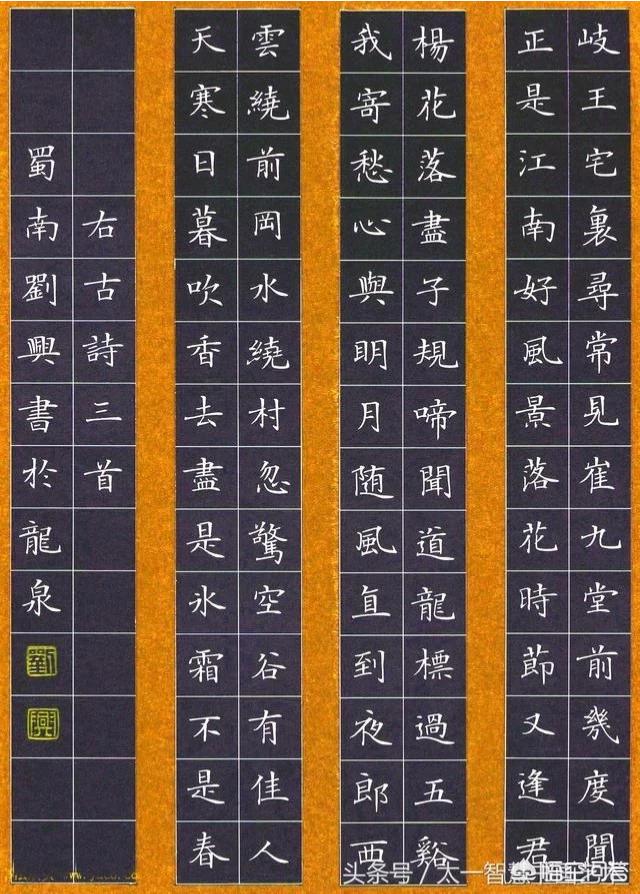 岐王宅裏尋常見崔九堂前幾度聞
正是江南好風景落花時節又逢君
楊花落盡子規啼聞道龍標過五谿
我寄愁心與眀月随風直到夜郎西
雲繞前岡水繞村忽驚空谷有佳人
天寒日暮吹香去盡是氷霜不是春
右古詩三首
蜀南劉興書於龍泉
劉
興
头条号／太一智慧